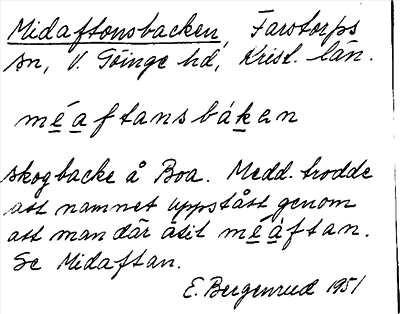 Midaftonsbacken, Farstorps
sn, V. Göinge hd, Krist. län.
méaftansbákan
skogbacke å Boa. Medd. trodde
att namnet uppstått genom
att man där ätit méáftan.
Se Midaftan.
E. Bergenrud 1951